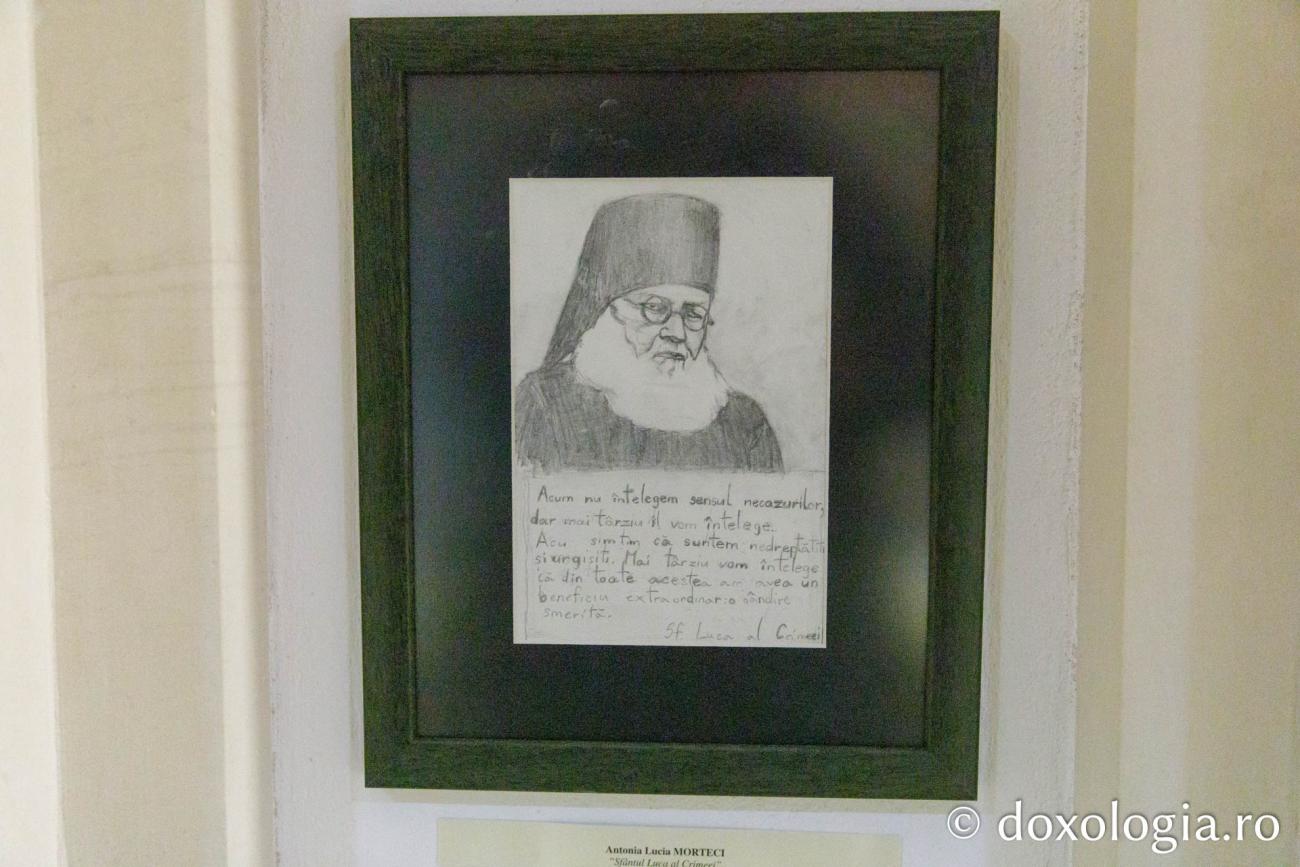 Acum nu întelegem sensul necazurilor,
dar mai târziu îl vom întelege.
Acu simtim că suntem nedreptătiti
si urgisiti. Mai târziu vom întelege
că din toate acestea am avea un
beneficiu extraordinar: o gândire
smerită.
Sf. Luca al Crimeei
Antonia Lucia MORTECI
"Sfântul Luca al Crimeei"
© doxologia.ro